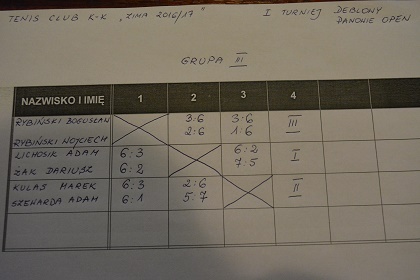 TENIS CLUB K-K „ZIMA 2016/17" I TURNIEJ DEBLOWY
DANONIE OPEN
GRUPA III
NAZWISKO I IMIĘ 1 2 3 4
RYBIŃSKI BOGUSŁAW 3:6 3:6 III
RYBIŃSKI WOJCIECH 2:6 1:6
LICHOSIK ADAM 6:3 6:2 I
ŻAK DARIUSZ 6:2 7:5
KULAS MAREK 6:3 2:6 II
SZEWARDA ADAM 6:1 5:7